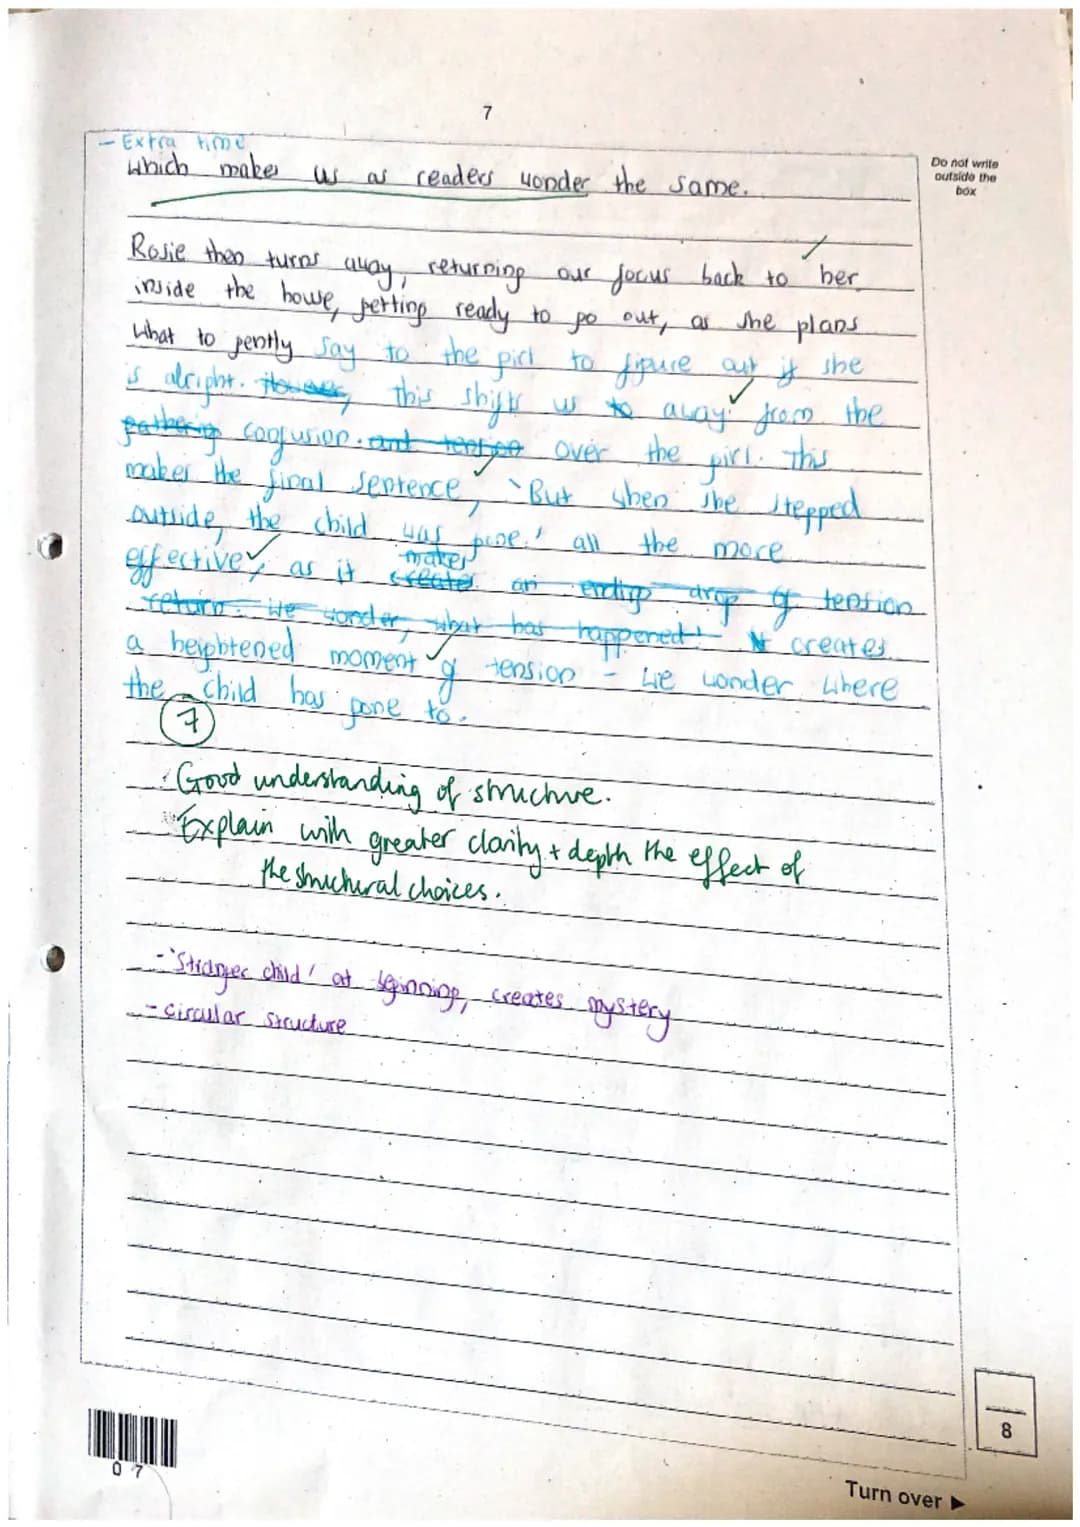 7
- Extra time
Do not write
outside the
box
which makes us as readers wonder the same.
Rosie then turns away, returning our focus back to her
inside the house, getting ready to go out, as she plans
what to gently say to the girl to figure out if she
is alright. However, this shifts us to away from the
gathering confusion. and tension over the girl. This
makes the final sentence, 'But when she stepped
outside, the child was gone.' all the more
makes
effective, as it creates an ending drop of tension
return. We wonder, what has happened! creates
a heightened moment of tension - we wonder where
the child has gone to.
7
Good understanding of structure.
Explain with greater clarity + depth the effect of
the structural choices.
- 'Stranger child' at beginning, creates mystery
- circular structure
8
07
Turn over ►